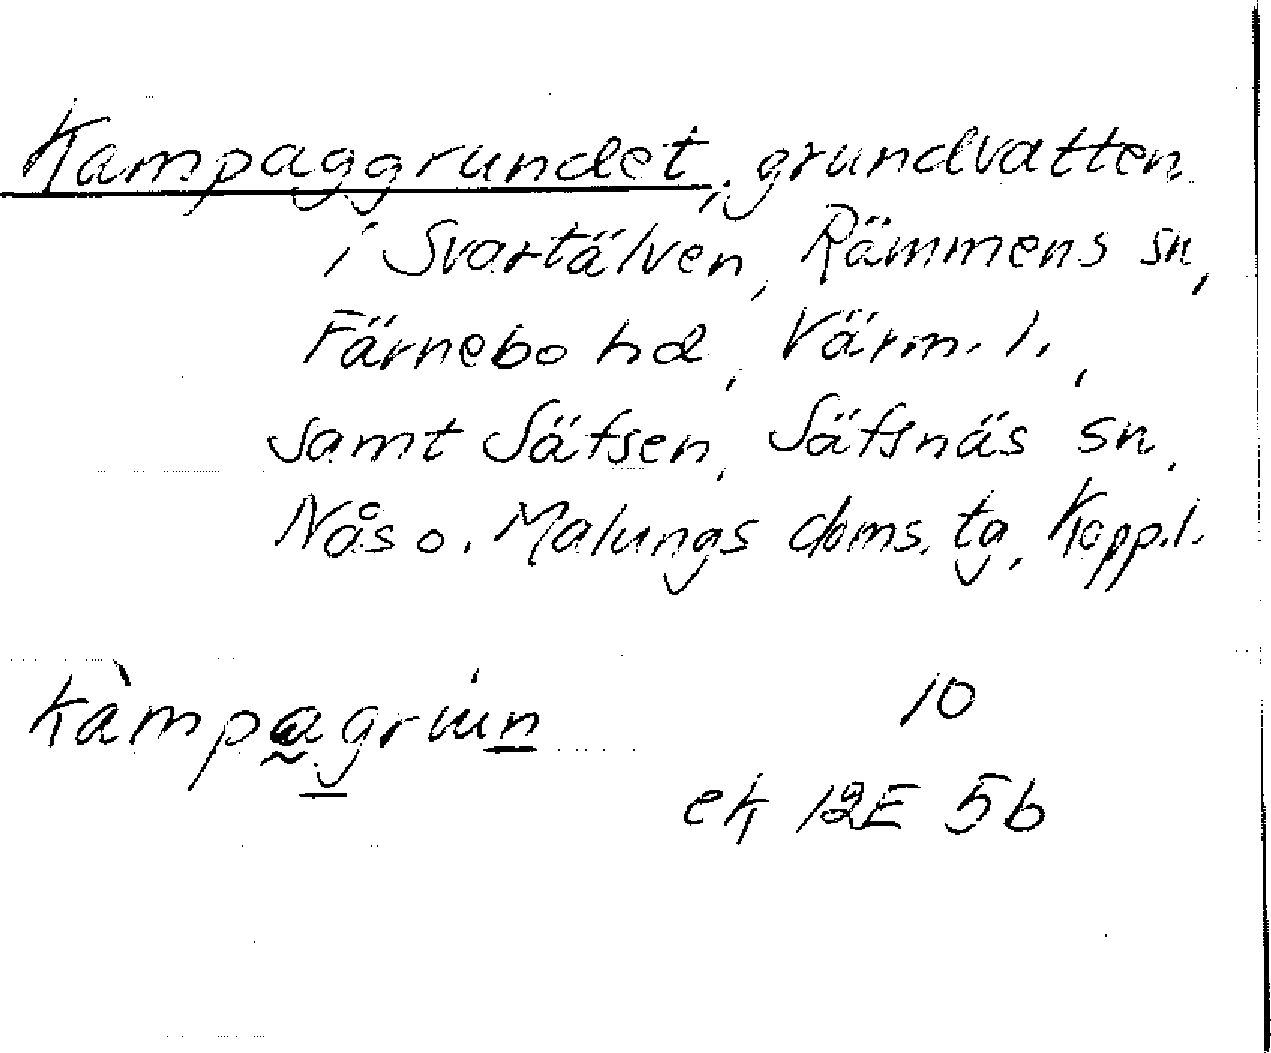 Kampaggrundet, grundvatten
i Svartälven, Rämmens sn,
Färnebo hd, Värm. l.,
samt Säfsen, Säfsnäs sn,
Nås o. Malungs doms. tg, Kopp.l.
kàmpagrún 10
ek 12E 5b